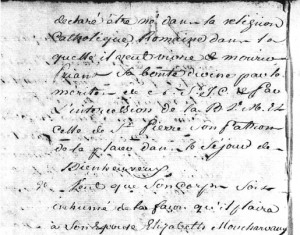 declaré être né dans la religion
Catholique Romaine dans la
quelle il veut vivre et mourir
priant Sa bonté divine par le
merite et c a S. J. C. & par
L'intercession de la B. V. M. et
Celle de St Pierre Son Patron
de la placer dans le Sejour des
Bienheureux
Veut que Son Corps Soit
inhumé de la façon qu'il plaira
à Son Epouse Elizabeth